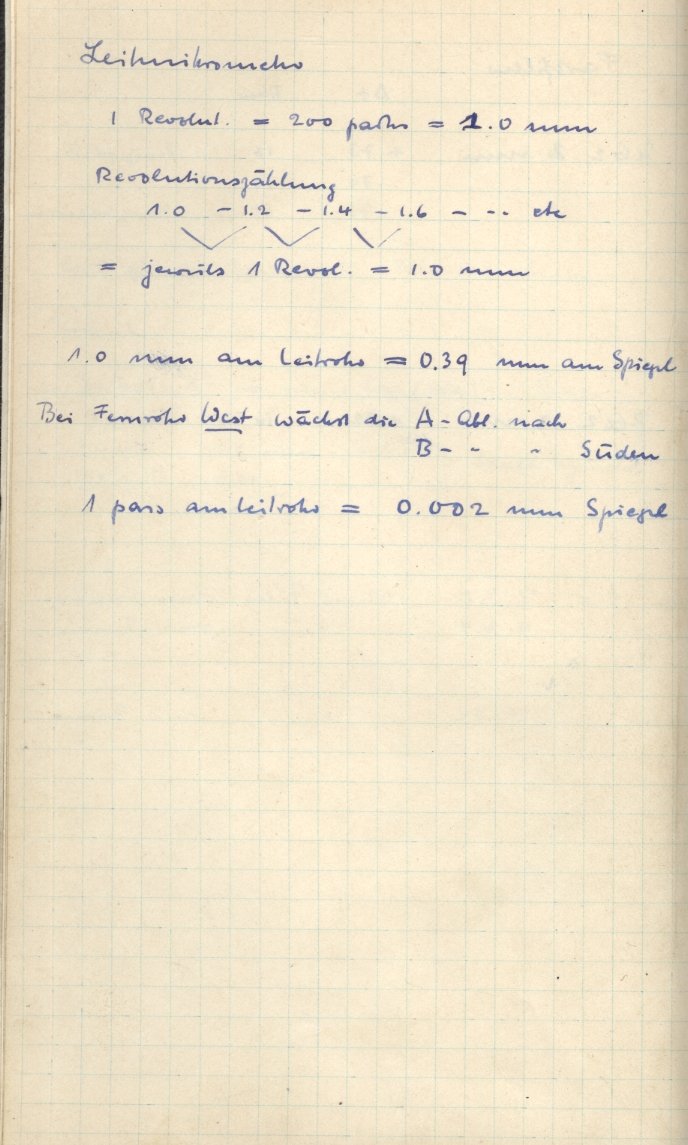 Leitmikrometer
1 Revolut. = 200 partes = 1.0 mm
Revolutionszählung
1.0 - 1.2 - 1.4 - 1.6 - -- etc
= jeweils 1 Revol. = 1.0 mm
1.0 mm am Leitrohr = 0.39 mm am Spiegel
Bei Fernrohr West wächst die A-Abl. nach
B- " " Süden
1 pars am Leitrohr = 0.002 mm Spiegel